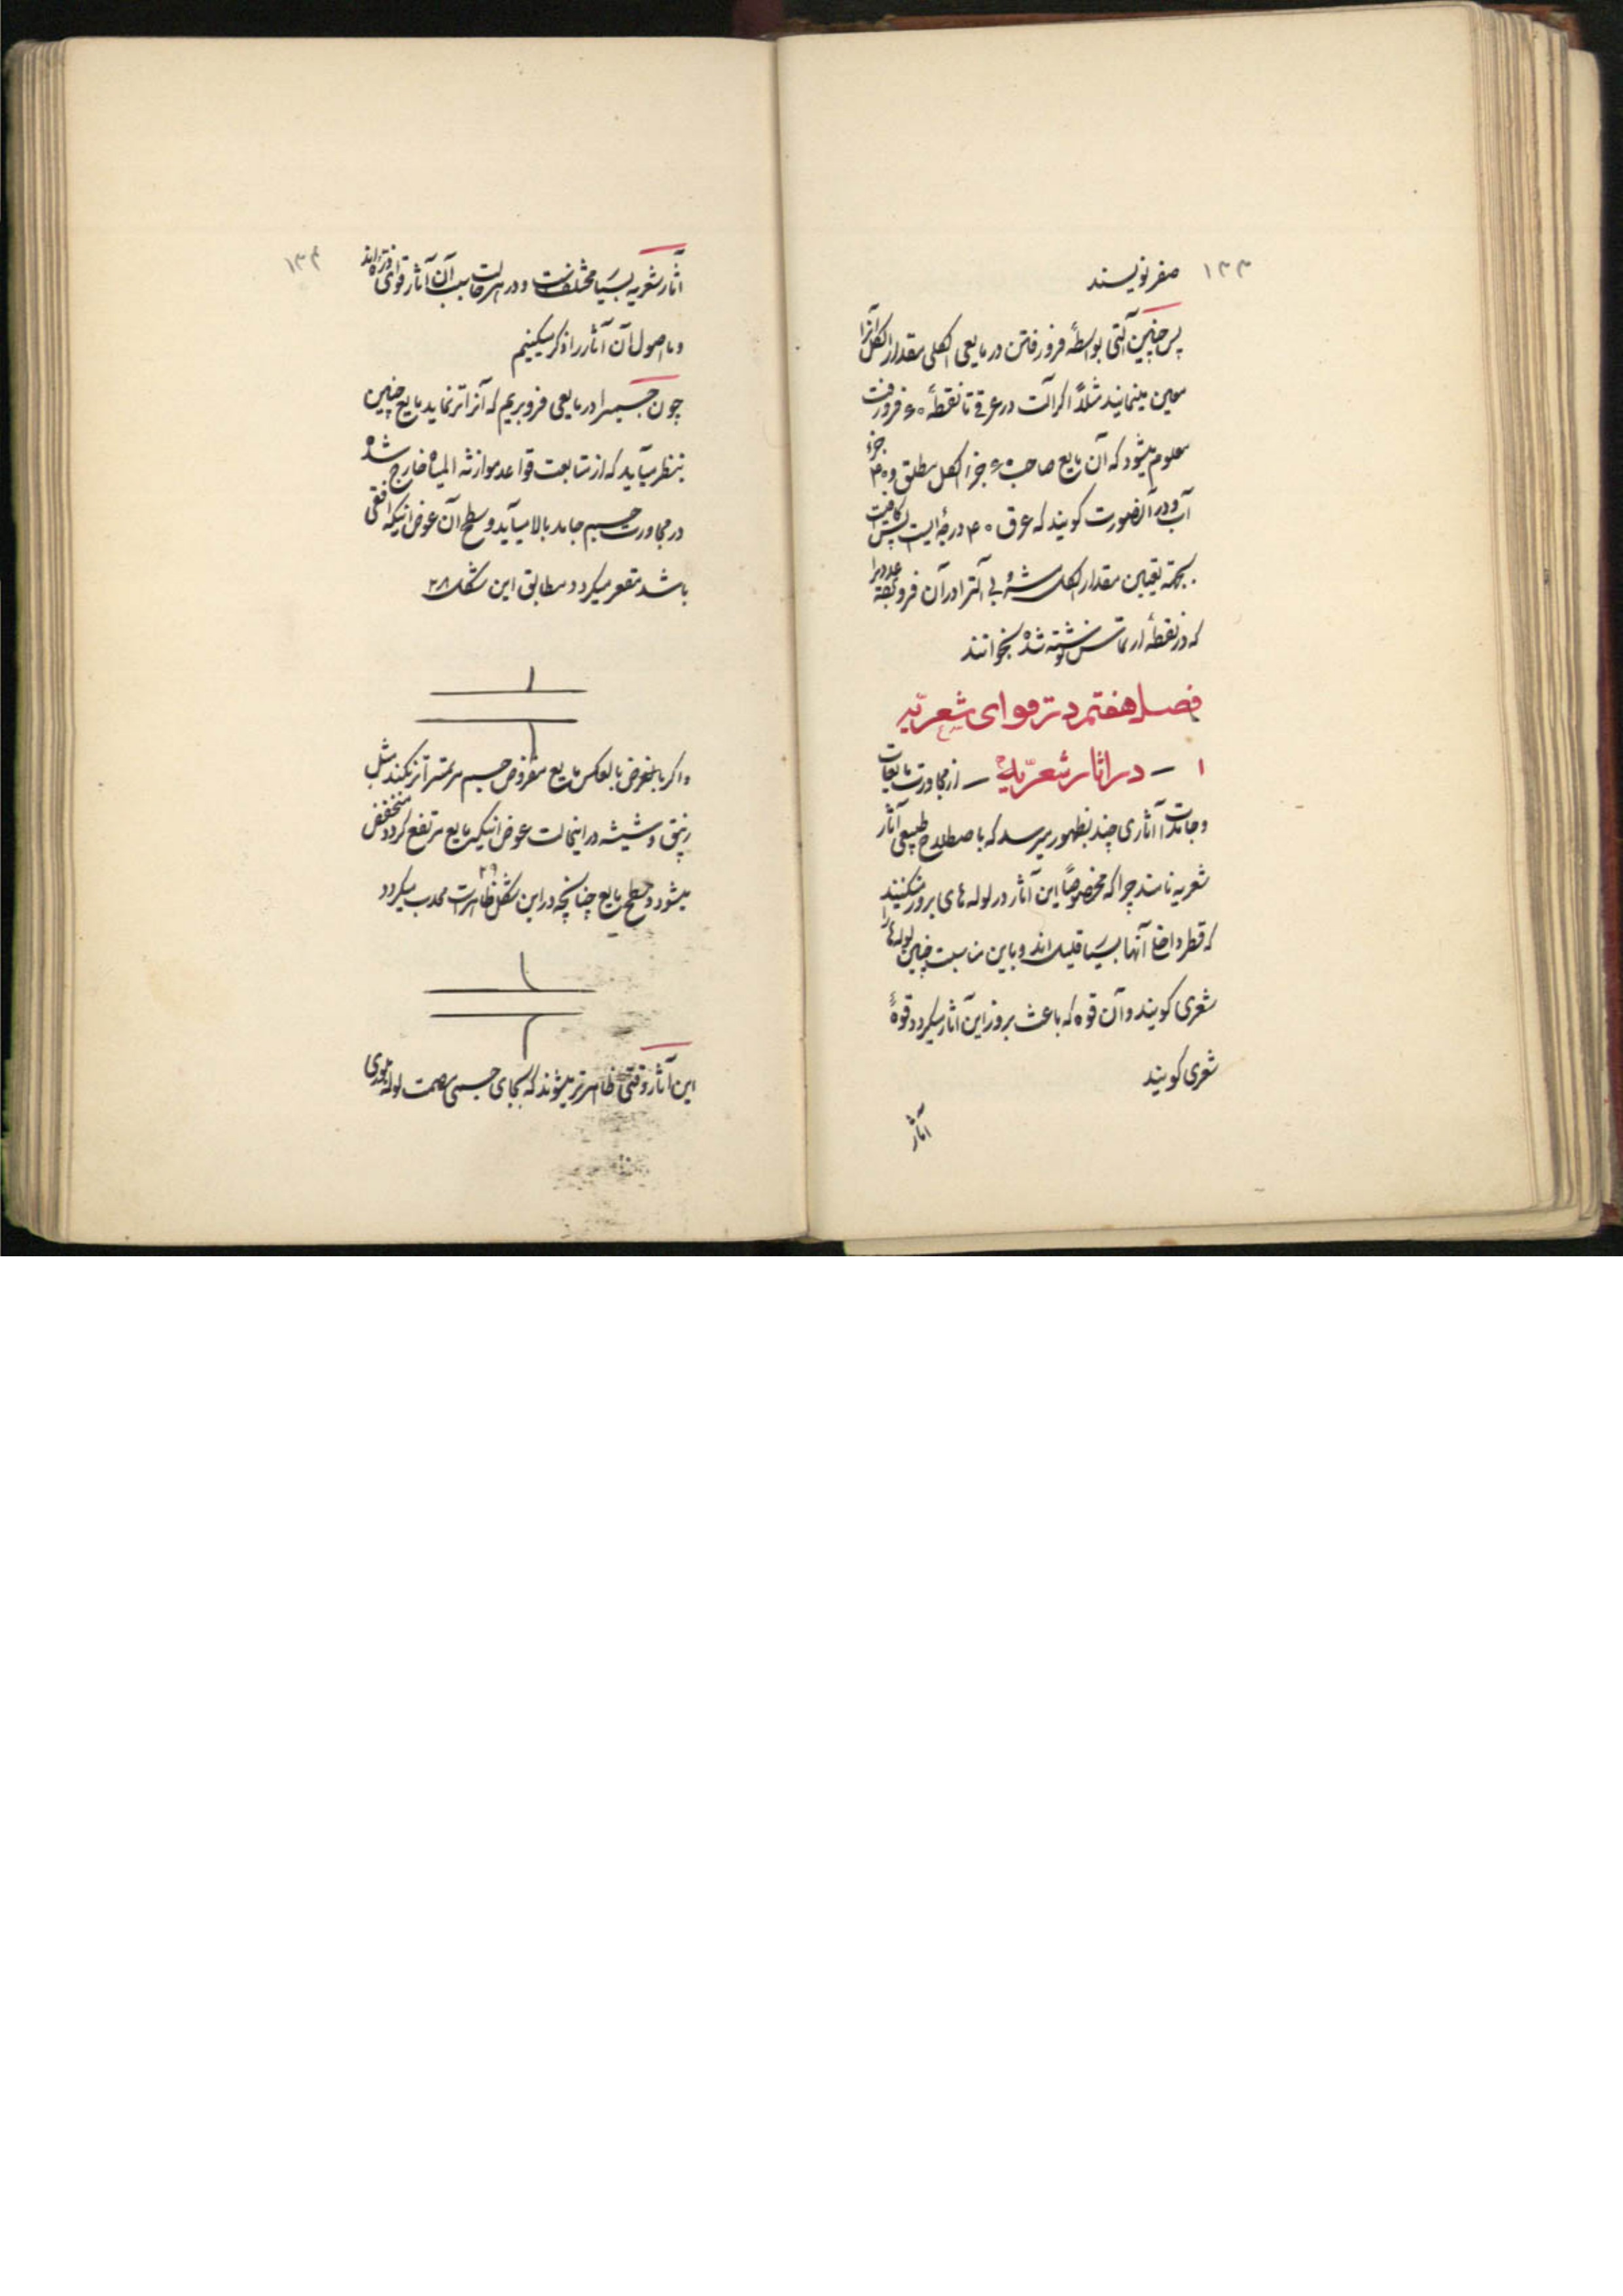 ۱۳۳
صفر نویسند
پس چنین آلتی بواسطهٔ فرو رفتن در مایعی الکلی مقدار الکل آنرا
معین مینمایند مثلاً اگر آلت در عرقی تا نقطهٔ ۶۰ فرو رفت
معلوم میشود که آن مایع صاحب ۶۰ جزء الکل مطلق و ۴۰ جزء
آب و در آنصورت گویند که عرق ۴۰ درجه ایست پس کافیست
بجهتة تعیین مقدار الکل آلترا در آن فرو عددیرا
که در نقطهٔ از تماس نوشته شده بخوانند
فصل هفتم در قوای شعریّه
۱ – در اثار شعریّه – از مجاورت مایعات
و جامدات آثاری چند بظهور میرسد که باصطلاح طبیعی آثار
شعریه نامند چرا که مخصوصاً این آثار در لوله های بروز میکنند
که قطر داخل آنها بسیار قلیل اند و باین مناسبت چنین لوله ها را
شعری گویند و آن قوه که باعث بروز این آثار میگردد قوهٔ
شعری گویند
آثار
۱۳۴
آثار شعریه بسیار مختلف است و در هر حالت سبب آن آثار قوای ذره اند
و ما اصول آن آثار را ذکر میکنیم
چون جسمیرا در مایعی فرو بریم که آنرا تر نماید مایع چنین
بنظر میآید که از متابعت قواعد موازنه المیاه خارج شده
در مجاورت جسم جامد بالا میآید و سطح آن عوض اینکه افقی
باشد مقعر میگردد مطابق این شکل ۲۸
و اگر بالفرض بالعکس مایع مفروض جسم را تر نکند مثل
زیبق و شیشه در اینحالت عوض اینکه مایع مرتفع گردد منخفض
میشود و سطح مایع چنانچه در این شکل ۲۹ ظاهر است محدب میگردد
این آثار وقتی ظاهرتر میشوند که بجای جسمی مصمت لوله بلوری